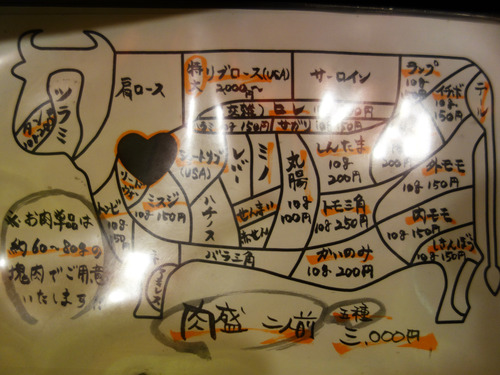 ツラミ
タン
肩ロース
特大
リブロース(USA)
2000円〜
サーロイン
ランプ
イチボ
10g 150円
テール
サガリ
ショートリブ
(USA)
レバー
ミノ
丸腸
10g
100円
しんたま
10g
200円
10g
200円
外モモ
10g 150円
ミスジ
10g 150円
ハチノス
センマイ
赤せん
トモ三角
10g 250円
内モモ
10g 150円
バラ三角
かいのみ
10g 200円
10g 150円
※ お肉単品は
約60〜80gの
塊肉でご用意
いたします
肉盛 二人前
五種
三,000円